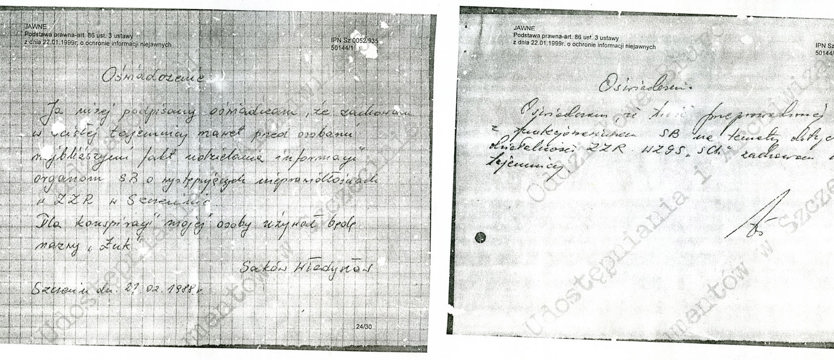 JAWNE
Podstawa prawna-art. 86 ust. 3 ustawy
z dnia 22.01.1999r. o ochronie informacji niejawnych
IPN Sz 0052/935
50144/1
Oświadczenie
Ja niżej podpisany oświadczam, że zachowam
w ścisłej tajemnicy nawet przed osobami
najbliższymi fakt udzielania informacji
organom SB o występujących nieprawidłościach
w ZZR w Szczecinie
Dla konspiracji mojej osoby używał będę
nazwy "Żuk"
Saków Władysław
Szczecin dn.
24/30
JAWNE
Podstawa prawna-art. 86 ust. 3 ustawy
z dnia 22.01.1999r. o ochronie informacji niejawnych
IPN Sz
50144
Oświadczenie
Oświadczam, że treść przeprowadzonej
z funkcjonariuszem SB na tematy
działalności ZZR zachowam
tajemnicy
Udostępniania i